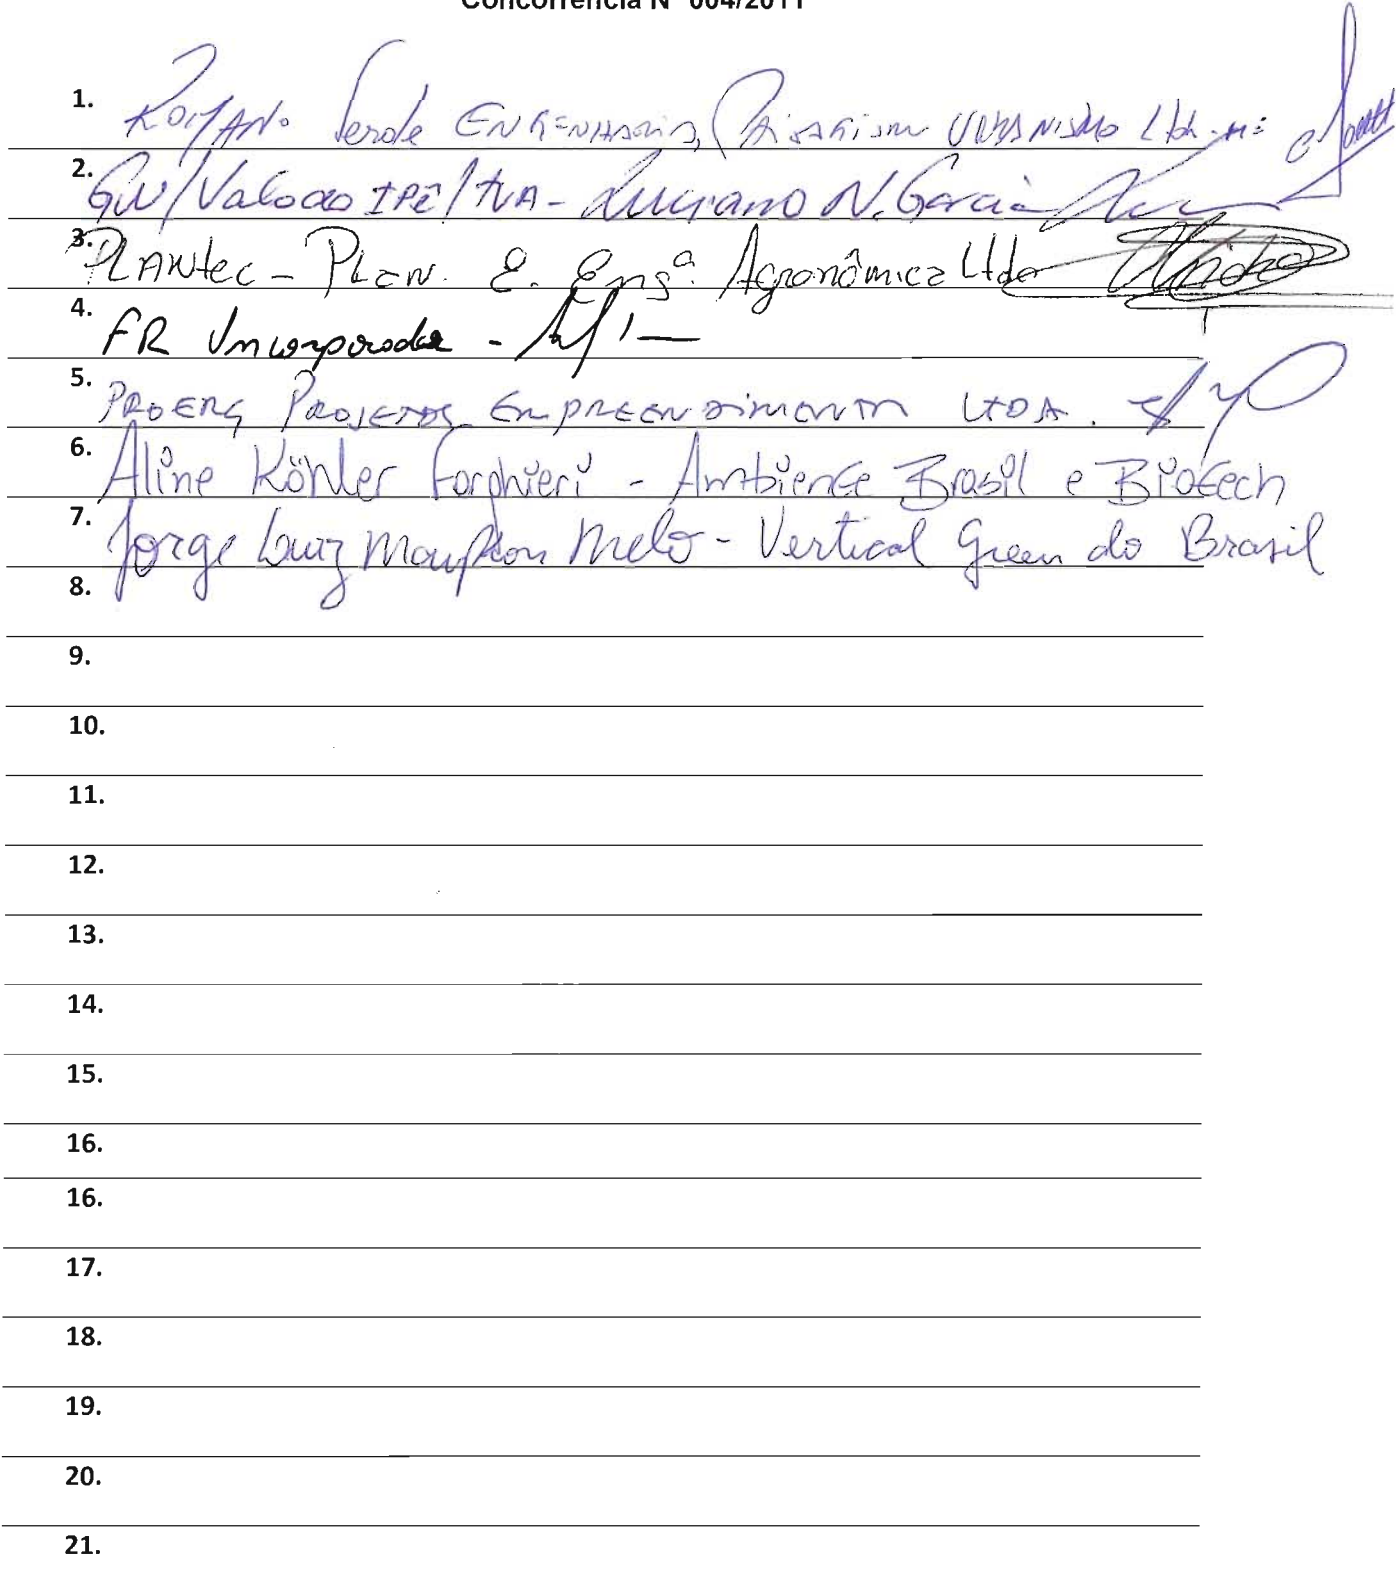 Concorrência Nº 004/2011
1. Romano Verde Engenharia, Paisagismo Urbanismo Ltda-ME
2. GW/Valoado IPÊ/TVA - Luciano N. Garcia
3. PLANtec - PLAN. E. Engª. Agronômica Ltda
4. FR Incorporadora -
5. PROENG PROJETOS EMPREENDIMENTOS LTDA.
6. Aline Köhler Forghieri - Ambience Brasil e Biotech
7. Jorge Luiz Melo - Vertical Green do Brasil
8.
9.
10.
11.
12.
13.
14.
15.
16.
16.
17.
18.
19.
20.
21.